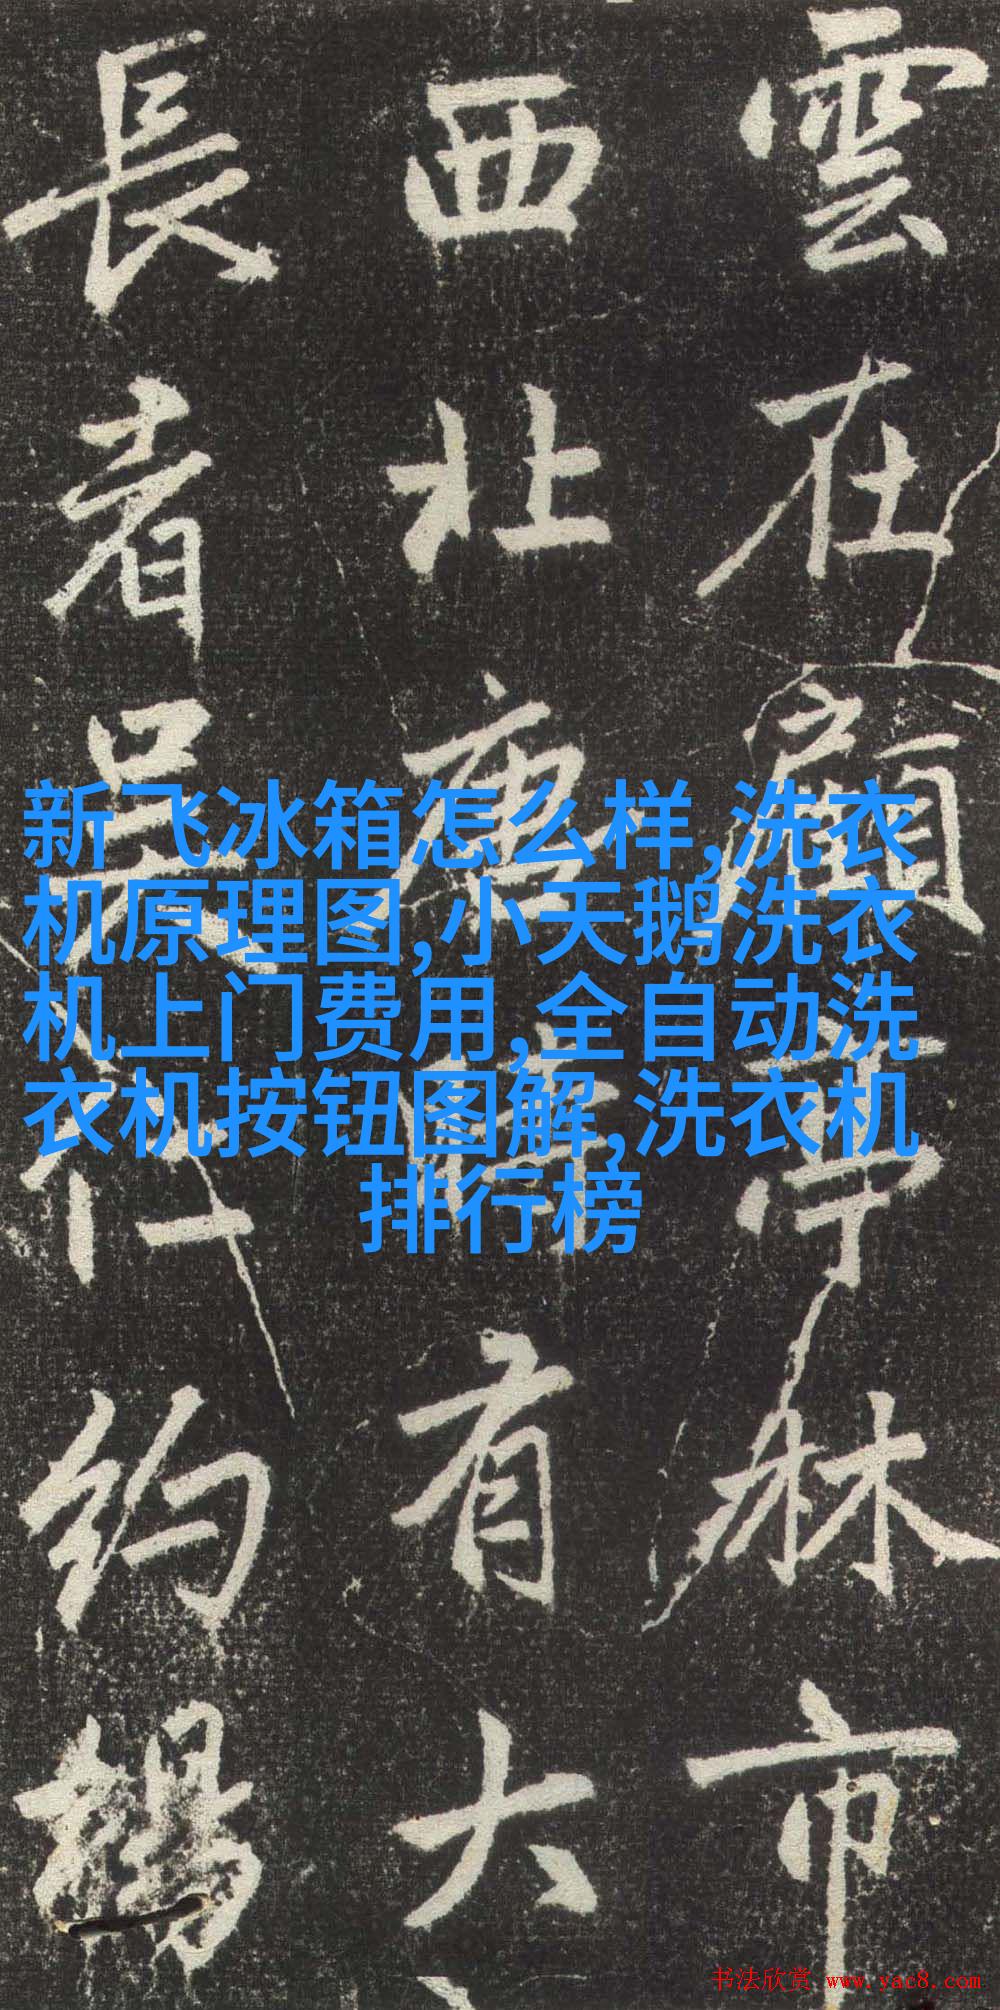 新飞冰箱怎么样,洗衣
机原理图,小天鹅洗衣
机上门费用,全自动洗
衣机按钮图解,洗衣机
排行榜
雲在市
西北唐有大
長者吴行約
书法欣赏 www.yac8.com